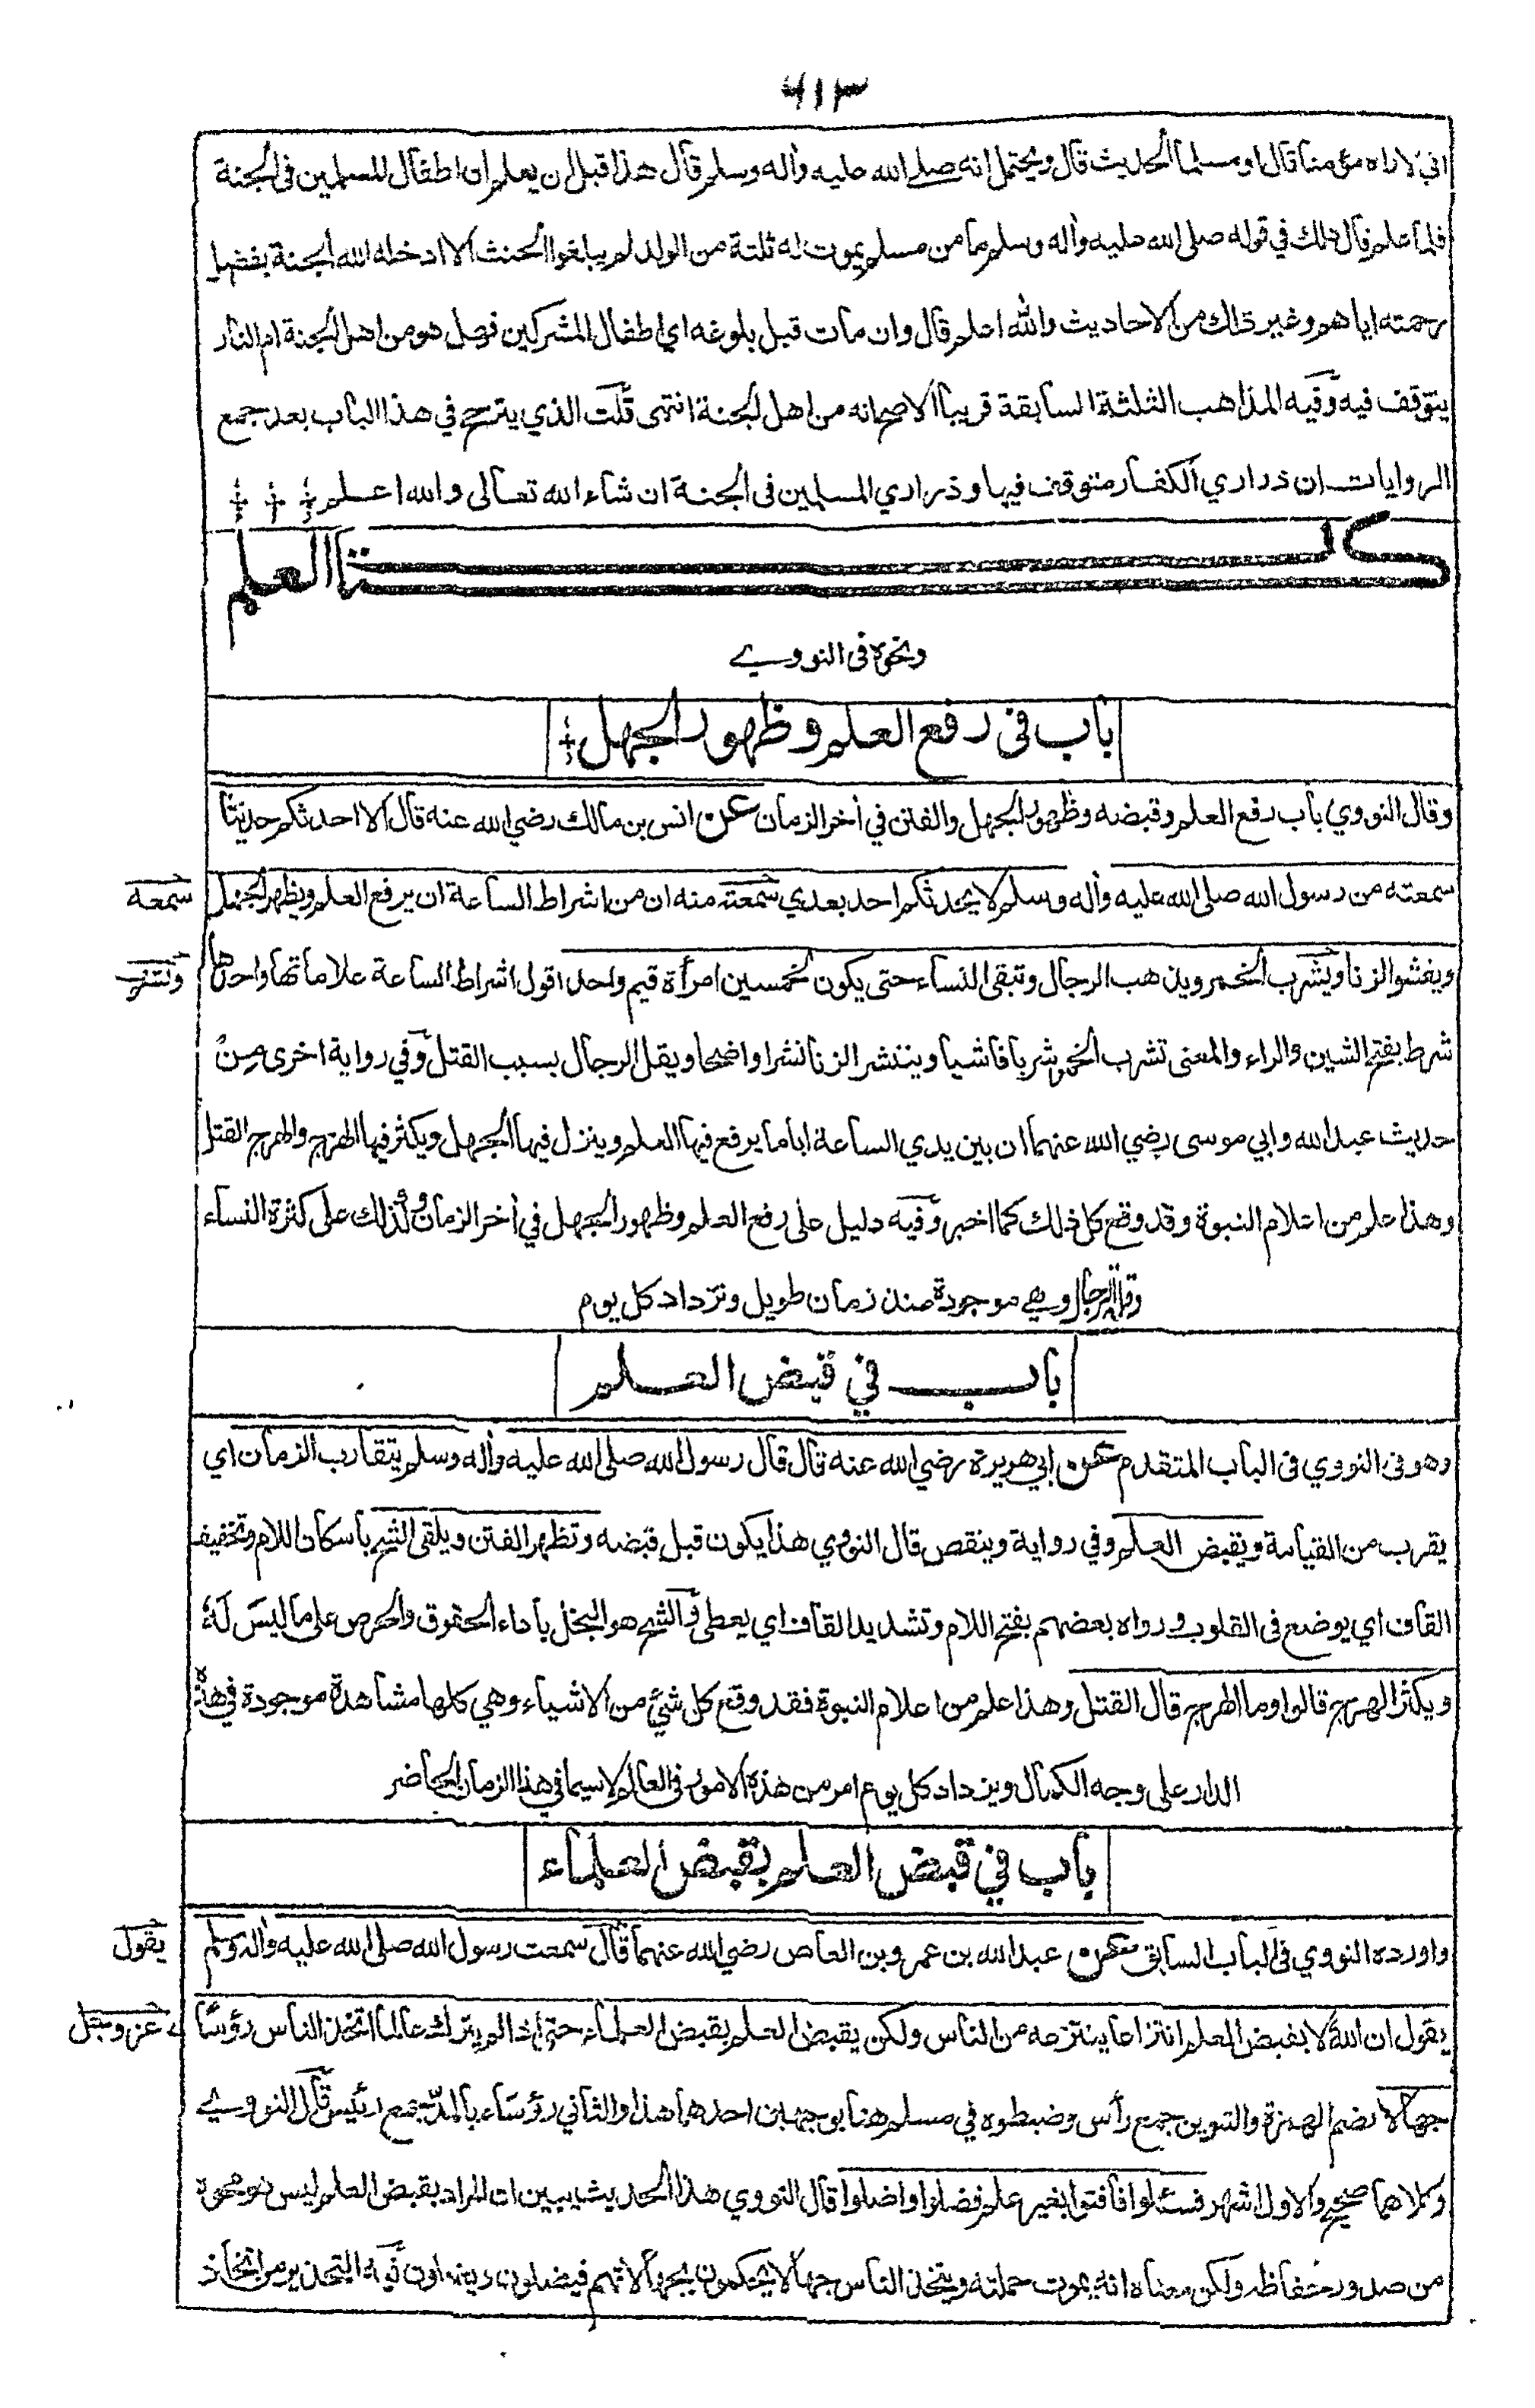 ٦١٣
اني لاراه مؤمنا قال او مسلما الحديث قال ويحتمل انه صلى الله عليه واٰله وسلم قال هذا قبل ان يعلم ان اطفال المسلمين فى الجنة
فلما علم قال ذلك في قوله صلى الله عليه واٰله وسلم ما من مسلم يموت له ثلثة من الولد لم يبلغوا الحنث الا ادخله الله الجنة بفضل
رحمته اياهم وغير ذلك من الاحاديث والله اعلم قال وان مات قبل بلوغه اي اطفال المشركين فهل هو من اهل الجنة ام النار
يتوقف فيه وفيه المذاهب الثلثة السابقة قريبا الاصح انه من اهل الجنة انتهى قلت الذي يترجح في هذا الباب بعد جمع
الروايات ان ذراري الكفار متوقف فيها وذراري المسلمين فى الجنة ان شاء الله تعالى والله اعلم
كتاب العلم
ونحوه فى النووي
باب فى رفع العلم وظهور الجهل
وقال النووي باب رفع العلم وقبضه وظهور الجهل والفتن في اٰخر الزمان عن انس بن مالك رضي الله عنه قال الا احدثكم حديثا
سمعته من رسول الله صلى الله عليه واٰله وسلم لا يحدثكم احد بعدي سمعته منه ان من اشراط الساعة ان يرفع العلم ويظهر الجهل
سمعه
ويفشو الزنا ويشرب الخمر ويذهب الرجال وتبقى النساء حتى يكون لخمسين امرأة قيم واحد اقول اشراط الساعة علاماتها واحدها
وتشرب
شرط بفتح الشين والراء والمعنى تشرب الخمر شربا فاشيا وينتشر الزنا نشرا واضحا ويقل الرجال بسبب القتل وفي رواية اخرى من
حديث عبد الله وابي موسى رضي الله عنهما ان بين يدي الساعة اياما يرفع فيها العلم وينزل فيها الجهل ويكثر فيها الهرج والهرج القتل
وهذا علم من اعلام النبوة وقد وقع كل ذلك كما اخبر وفيه دليل على رفع العلم وظهور الجهل في اٰخر الزمان وكذلك على كثرة النساء
وقلة الرجال وهي موجودة منذ زمان طويل وتزداد كل يوم
باب في قبض العلم
وهو فى النووي فى الباب المتقدم عن ابي هريرة رضي الله عنه قال قال رسول الله صلى الله عليه واٰله وسلم يتقارب الزمان اي
يقرب من القيامة ويقبض العلم وفي رواية وينقص قال النووي هذا يكون قبل قبضه وتظهر الفتن ويلقى الشح باسكان اللام وتخفيف
القاف اي يوضع فى القلوب ورواه بعضهم بفتح اللام وتشديد القاف اي يعطى والشح هو البخل باداء الحقوق والحرص على ما ليس له
ويكثر الهرج قالوا وما الهرج قال القتل وهذا علم من اعلام النبوة فقد وقع كل شئ من الاشياء وهي كلها مشاهدة موجودة في هذه
الدار على وجه الكمال ويزداد كل يوم امر من هذه الامور فى العالم لاسيما في هذا الزمان الحاضر
باب في قبض العلم بقبض العلماء
واورده النووي فى الباب السابق عن عبد الله بن عمرو بن العاص رضي الله عنهما قال سمعت رسول الله صلى الله عليه واٰله وسلم
يقول
يقول ان الله لا يقبض العلم انتزاعا ينتزعه من الناس ولكن يقبض العلم بقبض العلماء حتى اذا لم يترك عالما اتخذ الناس رؤسا
عز وجل
جهالا بضم الهمزة والتنوين جمع رأس وضبطوه في مسلم هنا بوجهين احدهما هذا والثاني رؤساء بالمد جمع رئيس قال النووي
وكلاهما صحيح والاول اشهر فسئلوا فافتوا بغير علم فضلوا واضلوا قال النووي هذا الحديث يبين ان المراد بقبض العلم ليس هو محوه
من صدور حفاظه ولكن معناه انه يموت حملته ويتخذ الناس جهالا يحكمون بجهالاتهم فيضلون ويضلون وفيه التحذير من اتخاذ